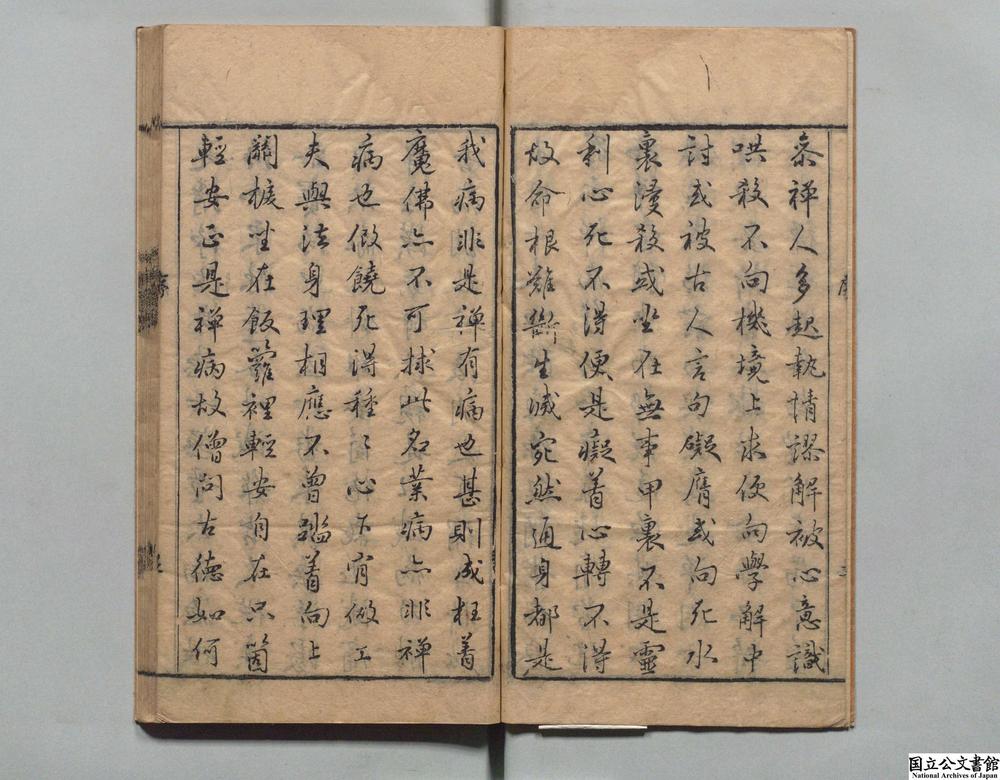 叅禅人多起執情謬解被心意識
哄殺不向機境上求便向學解中
討或被古人言句礙膺或向死水
裏浸殺或坐在無事甲裏不是靈
利心死不得便是癡着心轉不得
故命根難斷生滅宛然通身都是
我病非是禅有病也甚則成枉着
魔佛亦不可捄此名業病亦非禅
病也假饒死得種〻心下肯做工
夫與法身理相應不曾踏着向上
關棙坐在飯籮裡輕安自在只箇
輕安正是禅病故僧问古德如何
序
国立公文書館
National Archives of Japan